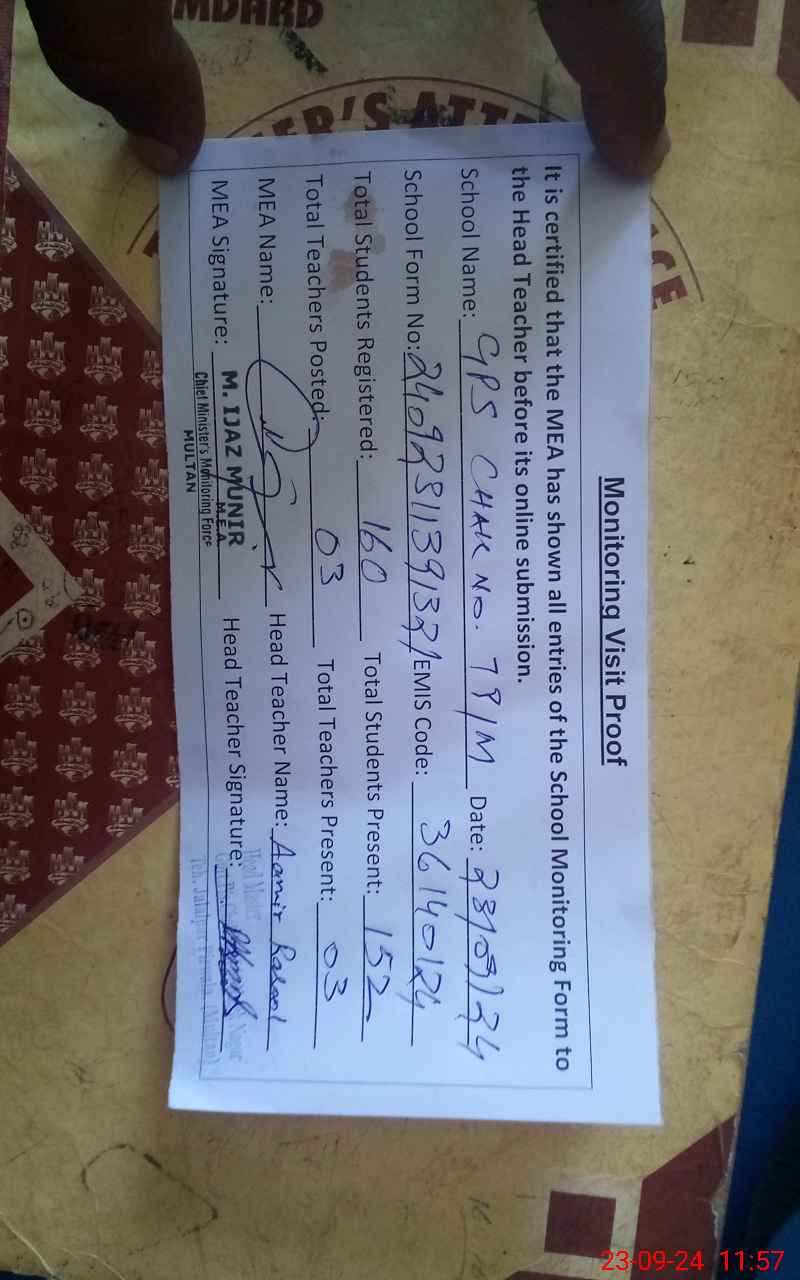 Monitoring Visit Proof
It is certified that the MEA has shown all entries of the School Monitoring Form to
the Head Teacher before its online submission.
School Name: GPS CHAK NO. 78/M Date: 23/09/24
School Form No: EMIS Code: 36140124
Total Students Registered: 160 Total Students Present: 152
Total Teachers Posted: 03 Total Teachers Present: 03
MEA Name: Head Teacher Name: Aamir Rasool
MEA Signature: Head Teacher Signature:
M. IJAZ MUNIR
M.E.A.
Chief Minister's Monitoring Force
MULTAN
Head Master
Teh. Jalalpur (Multan)
23-09-24 11:57